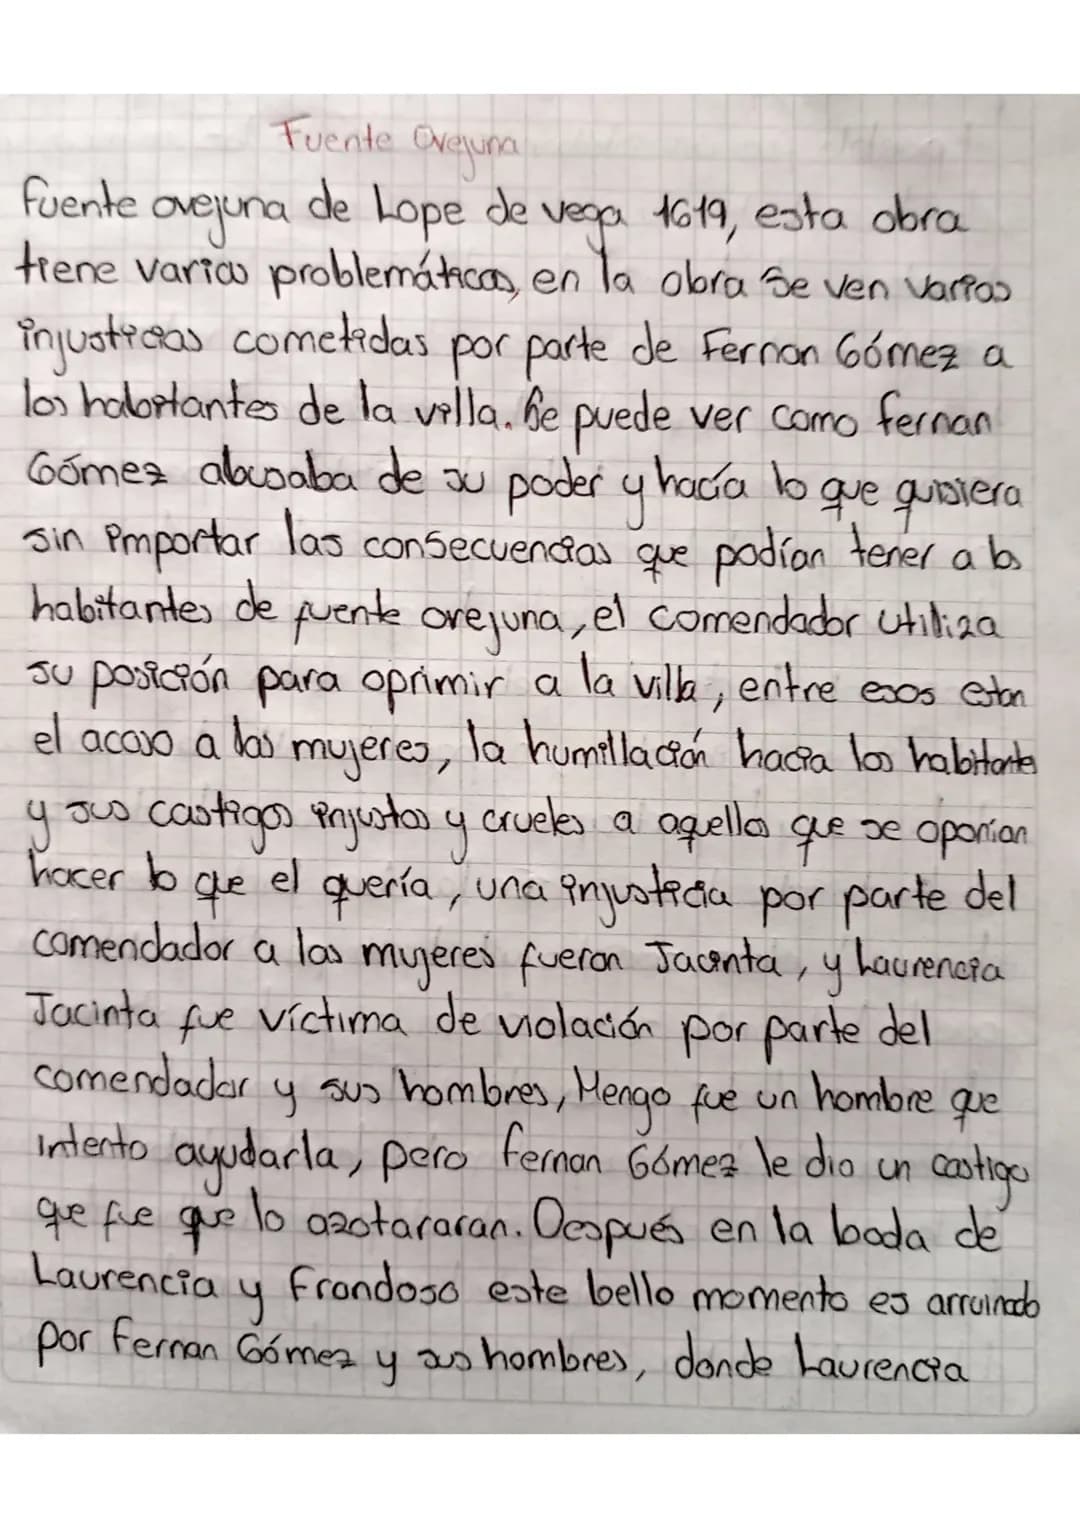 Fuente Ovejuna
Fuente ovejuna de Lope de vega 1619, esta obra
tiene varias problemáticas, en la obra se ven varias
injusticias cometidas por parte de Fernan Gómez a
los habitantes de la villa. Se puede ver como fernan
Gómez abusaba de su poder y hacía lo que quisiera
sin importar las consecuencias que podían tener a los
habitantes de fuente ovejuna, el comendador utiliza
su posición para oprimir a la villa, entre esos estan
el acoso a las mujeres, la humillación hacia los habitantes
y sus castigos injustos y crueles a aquellos que se oponían
hacer lo que el quería, una injusticia por parte del
comendador a las mujeres fueron Jacinta, y Laurencia
Jacinta fue víctima de violación por parte del
comendador y sus hombres, Mengo fue un hombre que
intento ayudarla, pero fernan Gómez le dio un castigo
que fue que lo azotararan. Después en la boda de
Laurencia y Frondoso este bello momento es arruinado
por Fernan Gómez y sus hombres, donde Laurencia